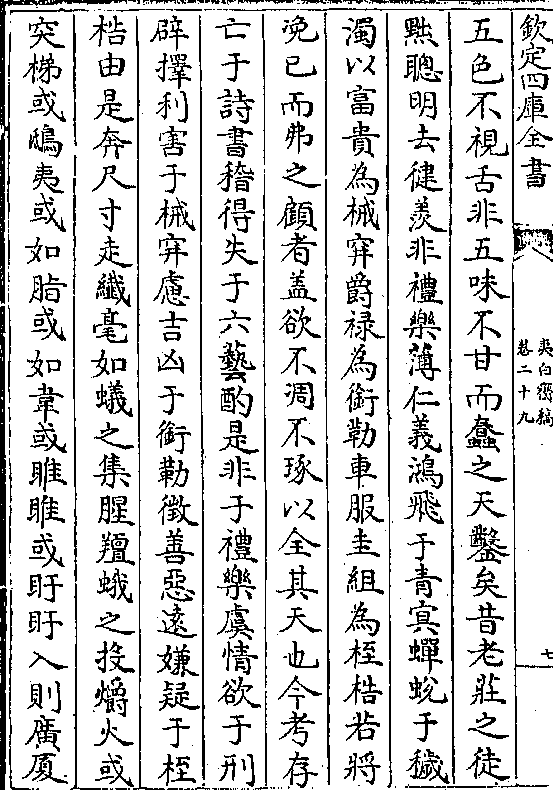 欽定四庫全書
夷白齋稿
卷二十九
七
五色不視舌非五味不甘而蠢之天鑿矣昔老莊之徒
黜聰明去健羨非禮樂薄仁義鴻飛于青冥蟬蛻于穢
濁以富貴為械穽爵禄為銜勒車服圭組為桎梏若將
浼已而弗之顧者盖欲不凋不琢以全其天也今考存
亡于詩書稽得失于六藝酌是非于禮樂虞情欲于刑
辟擇利害于械穽慮吉凶于銜勒徵善惡遠嫌疑于桎
梏由是奔尺寸走纖毫如蟻之集腥羶蛾之投爝火或
突梯或鴟夷或如脂或如韋或睢睢或盱盱入則廣厦